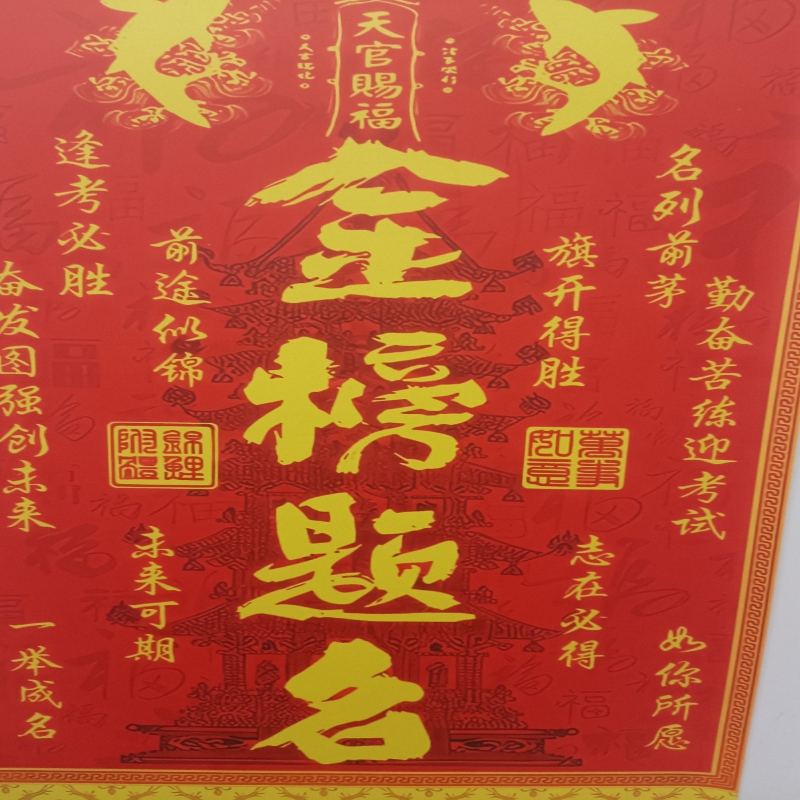 天官賜福
金榜题名
名列前茅
勤奋苦练迎考试
旗开得胜
萬事如意
志在必得
如你所愿
逢考必胜
前途似锦
奋发图强创未来
錦鲤附體
未来可期
一举成名